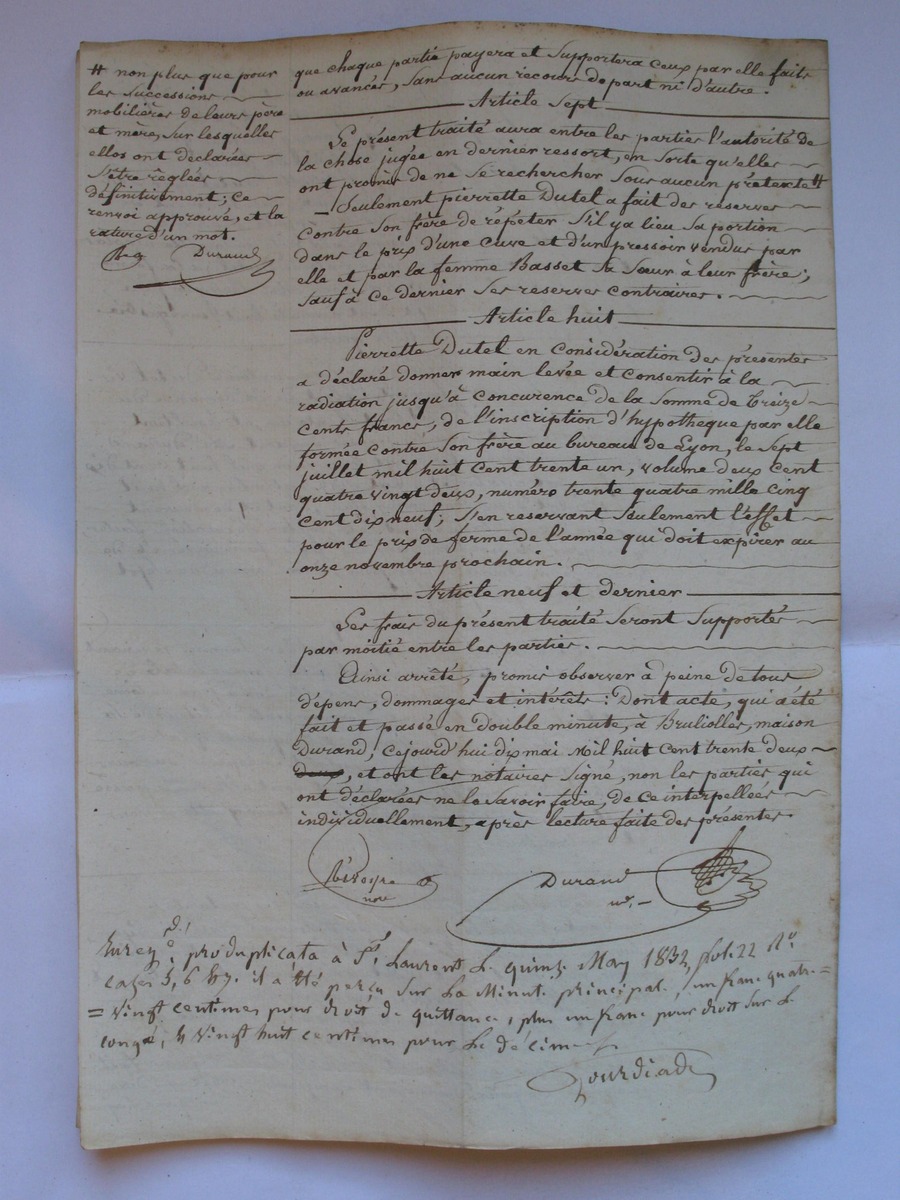 # non plus que pour
les successions
mobilières de leurs père
et mère, sur lesquelles
elles ont déclarées
s'être réglées
définitivement; ce
renvoi approuvé, et la
rature d'un mot.
Durand
que chaque partie payera et supportera ceux par elle faits
ou avancés, sans aucun recours de part ni d'autre.
Article sept
Le présent traité aura entre les parties l'autorité de
la chose jugée en dernier ressort, en sorte qu'elles
ont promis de ne se rechercher sous aucun prétexte #
- Seulement pierrette Dutel a fait des reserves
contre son frère de répéter s'il y a lieu sa portion
dans le prix d'une cuve et d'un pressoir vendus par
elle et par la femme Basset sa sœur à leur frère;
sauf à ce dernier ses reserves contraires.
Article huit
Pierrette Dutel en considération des présentes
a déclaré donner main levée et consentir à la
radiation jusqu'à concurence de la somme de treize
cents francs, de l'inscription d'hypotheque par elle
formée contre son frère au bureau de Lyon, le sept
juillet mil huit cent trente un, volume deux cent
quatre vingt deux, numéro trente quatre mille cinq
cent dix neuf; s'en reservant seulement l'effet
pour le prix de ferme de l'année qui doit expirer au
onze novembre prochain.
Article neuf et dernier
Les frais du présent traité seront supportés
par moitié entre les parties.
Ainsi arrêté, promis observer à peine de tous
dépens, dommages et intérêts: Dont acte, qui a été
fait et passé en double minute, à Bruliolles, maison
Durand, cejourd'hui dix mai mil huit cent trente deux
deux, et ont les notaires signé, non les parties qui
ont déclarées ne le savoir faire, de ce interpellées
individuellement, après lecture faite des présentes.
Durand
Enreg. pro duplicata à St. Laurent le quinze May 1832, fol. 22 Ro.
cases 5, 6 & 7. il a été perçu sur la minute principale, un franc quatre =
= vingt centimes pour droit de quittance, plus un franc pour droit sur le
congé, & vingt huit centimes pour le décime